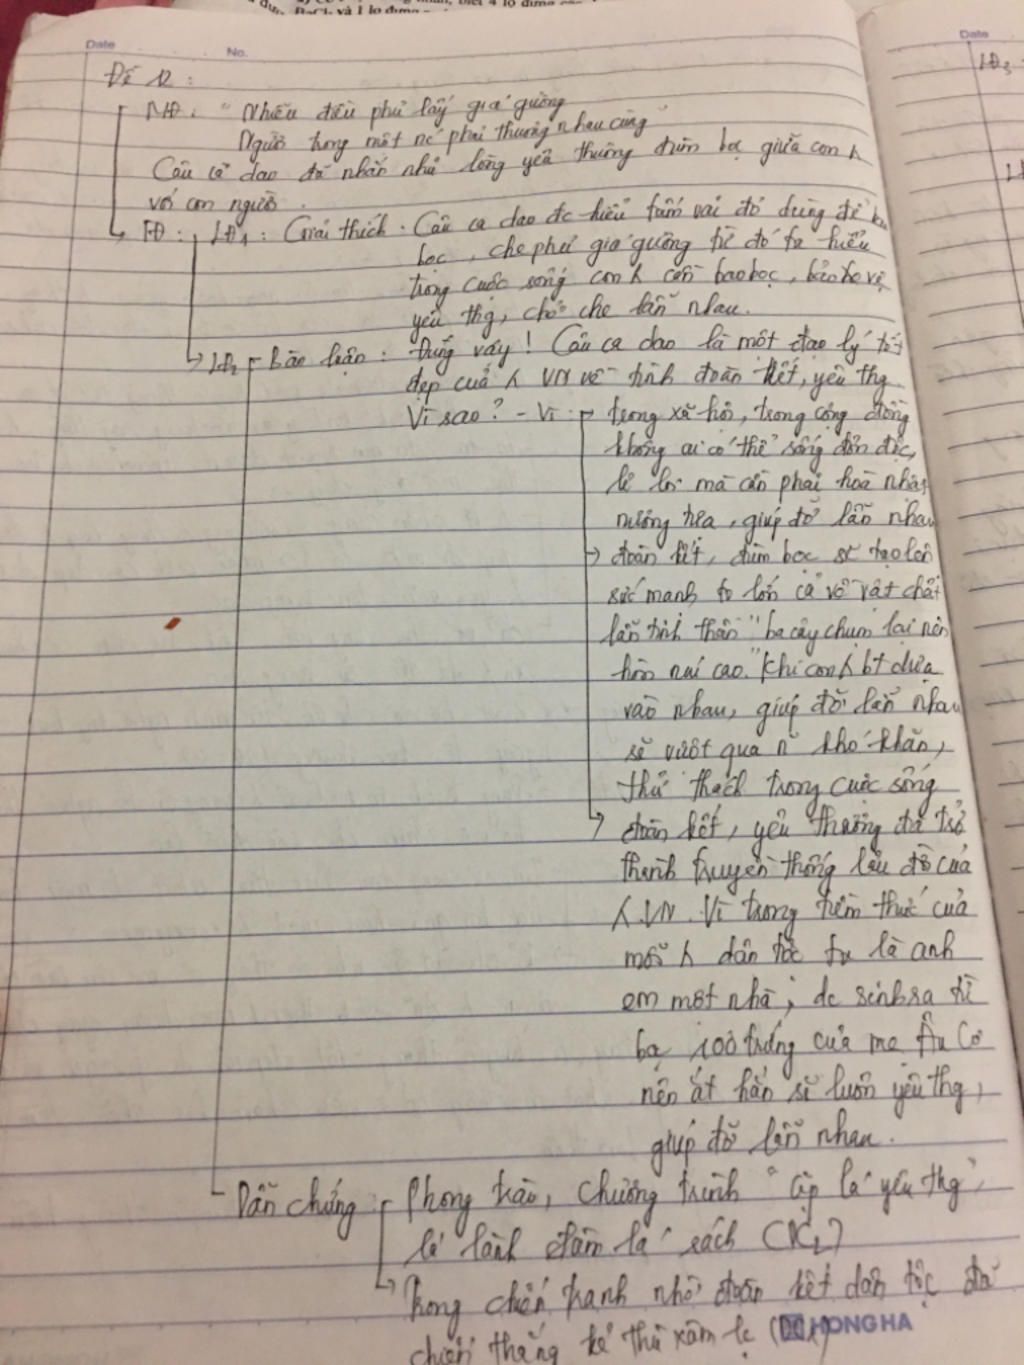 Date No.
Đề 12:
MĐ: "Nhiễu điều phủ lấy giá gương
Người trong một nc phải thương nhau cùng"
Câu ca dao đã nhắn nhủ lòng yêu thương đùm bọc giữa con
với con người.
TĐ: LĐ1: Giải thích. Câu ca dao đc hiểu tấm vải đỏ dùng để
bọc, che phủ giá gương từ đó ta hiểu
trong cuộc sống con cần bao bọc, bảo vệ,
yêu thg, chở che lẫn nhau.
LĐ2 Bàn luận: Đúng vậy! Câu ca dao là một đạo lý tốt
đẹp của VN về tình đoàn kết, yêu thg
Vì sao? - Vì trong xã hội, trong cộng đồng
không ai có thể sống đơn độc,
lẻ loi mà cần phải hoà nhập
nương tựa, giúp đỡ lẫn nhau
→ đoàn kết, đùm bọc sẽ tạo lên
sức mạnh to lớn cả về vật chất
lẫn tinh thần "ba cây chụm lại nên
hòn núi cao." Khi con bt dựa
vào nhau, giúp đỡ lẫn nhau
sẽ vượt qua n khó khăn,
thử thách trong cuộc sống
→ đoàn kết, yêu thương đã trở
thành truyền thống lâu đời của
VN. Vì trong tiềm thức của
mỗi dân tộc ta là anh
em một nhà, đc sinh ra từ
bọc 100 trứng của mẹ Âu Cơ
nên ắt hẳn sẽ luôn yêu thg,
giúp đỡ lẫn nhau.
Dẫn chứng Phong trào, chương trình "cặp lá yêu thg",
lá lành đùm lá rách
→ Trong chiến tranh nhờ đoàn kết dân tộc đã
chiến thắng kẻ thù xâm lc
HONG HA
Date
LĐ3